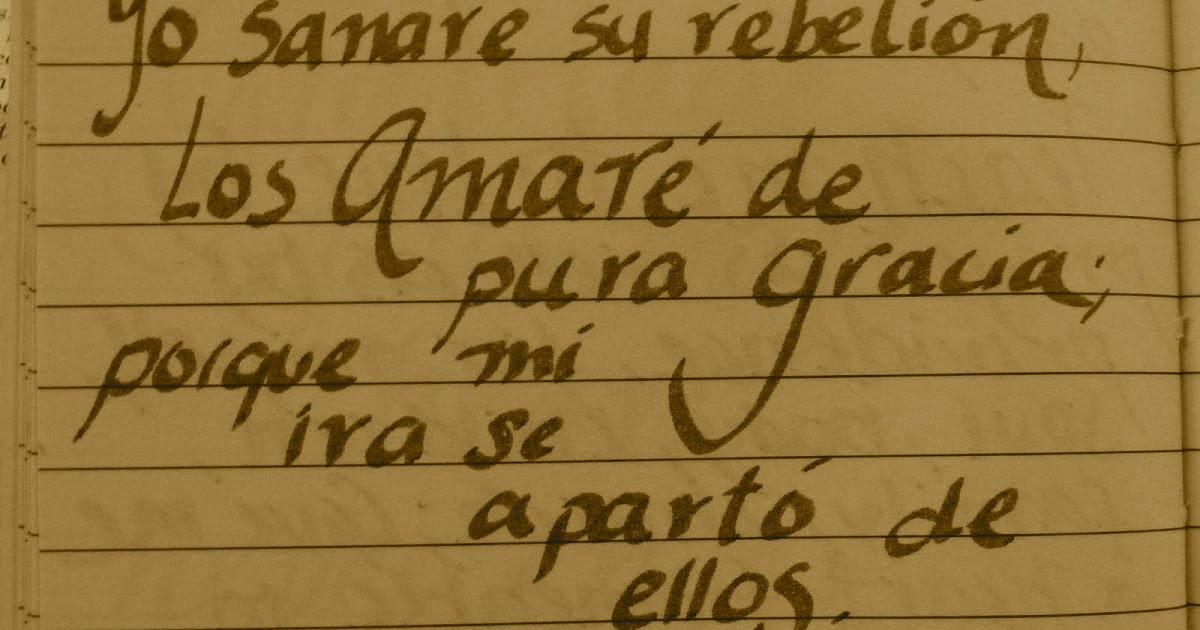 yo sanare su rebelión,
Los Amaré de
pura gracia;
porque mi
ira se
apartó de
ellos.